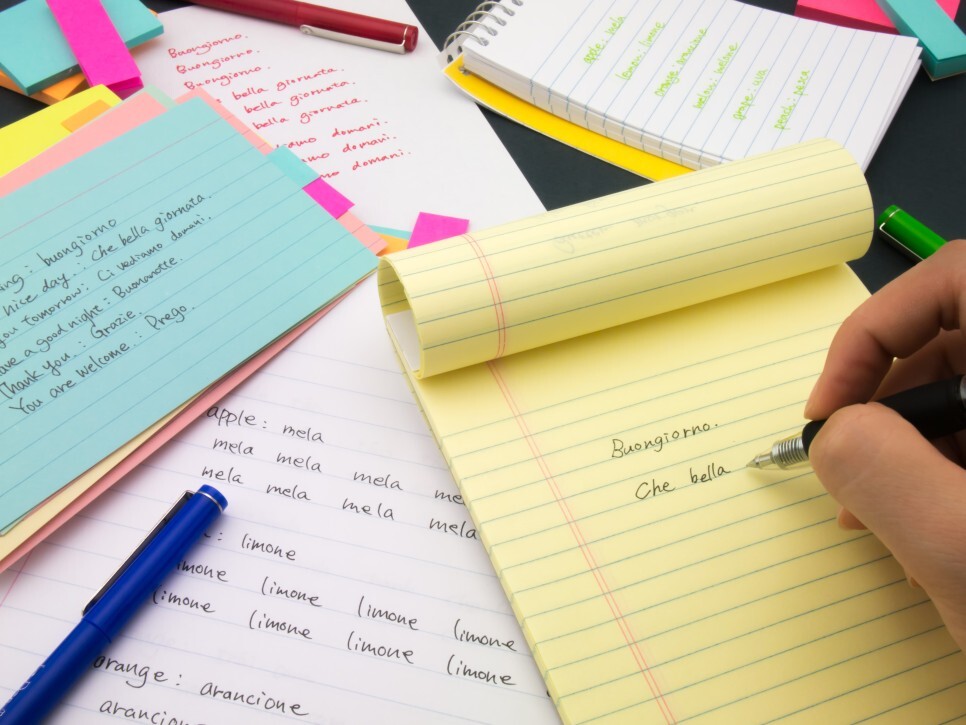 Buongiorno.
Buongiorno.
Buongiorno.
bella giornata.
bella giornata.
bella giornata.
domani.
domani.
domani.
apple: mela
lemon: limone
orange: arancione
melon: mellone
grape: uva
peach: pesca
: buongiorno
nice day.: Che bella giornata.
you tomorrow: Ci vediamo domani.
have a good night: Buonanotte.
Thank you: Grazie.
You are welcome.: Prego.
apple: mela
mela mela mela
mela mela mela mela
: limone
limone limone limone
limone limone limone limone
orange: arancione
Buongiorno.
Che bella